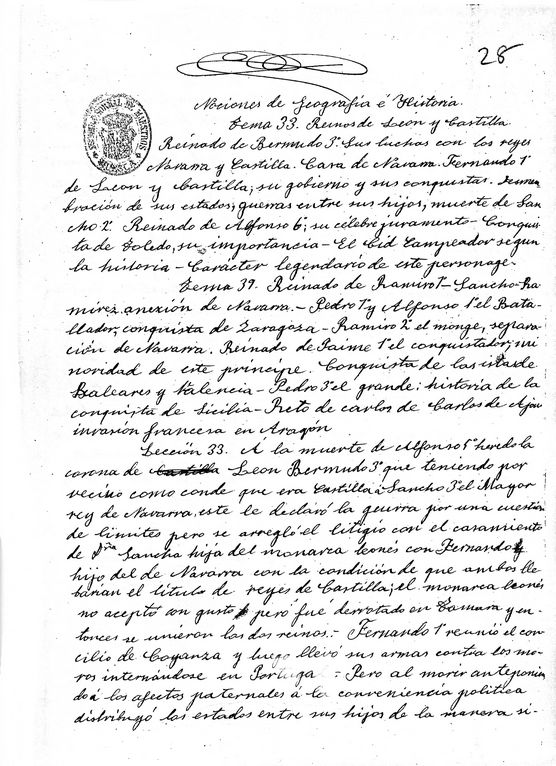 28
Nociones de Geografía é Historia.
Tema 33. Reinos de León y Castilla
Reinado de Bermudo 3º. Sus luchas con los reyes
Navarra y Castilla. Casa de Navarra. Fernando 1º
de Leon y Castilla; su gobierno y sus conquistas.
bración de sus estados; guerras entre sus hijos, muerte de San
cho 2º Reinado de Alfonso 6º; su célebre juramento - Conquis
ta de Toledo, su importancia - El Cid Campeador según
la historia - Carácter legendario de este personage -
Tema 37. Reinado de Ramiro 1º - Sancho Ra
mirez anexión de Navarra. - Pedro 1º y Alfonso 1º el Bata
llador, conquista de Zaragoza - Ramiro 2º el monge, separa
ción de Navarra. Reinado de Jaime 1º el conquistador, mi
noridad de este príncipe. Conquista de las islas de
Baleares y Valencia - Pedro 3º el grande: historia de la
conquista de Sicilia - Reto de carlos de Carlos de Ajou
invasión francesa en Aragón
Lección 33. A la muerte de Alfonso 5º heredo la
corona de Castilla Leon Bermudo 3º que teniendo por
vecino como conde que era Castilla á Sancho 3º el Mayor
rey de Navarra, este le declaró la guerra por una cuestión
de limites pero se arregló el litigio con el casamiento
de Dña Sancha hija del monarca leonés con Fernando
hijo del de Navarra con la condición de que ambos lle
barían el titulo de reyes de Castilla; el monarca leonés
no aceptó con gusto pero fué derrotado en Tamara y en-
tonces se unieron los dos reinos. - Fernando 1º reunió el con
cilio de Coyanza y luego llevó sus armas contra los mo-
ros internándose en Portuga - Pero al morir anteponien
do á los afectos paternales á la conveniencia politica
distribuyó los estados entre sus hijos de la manera si-